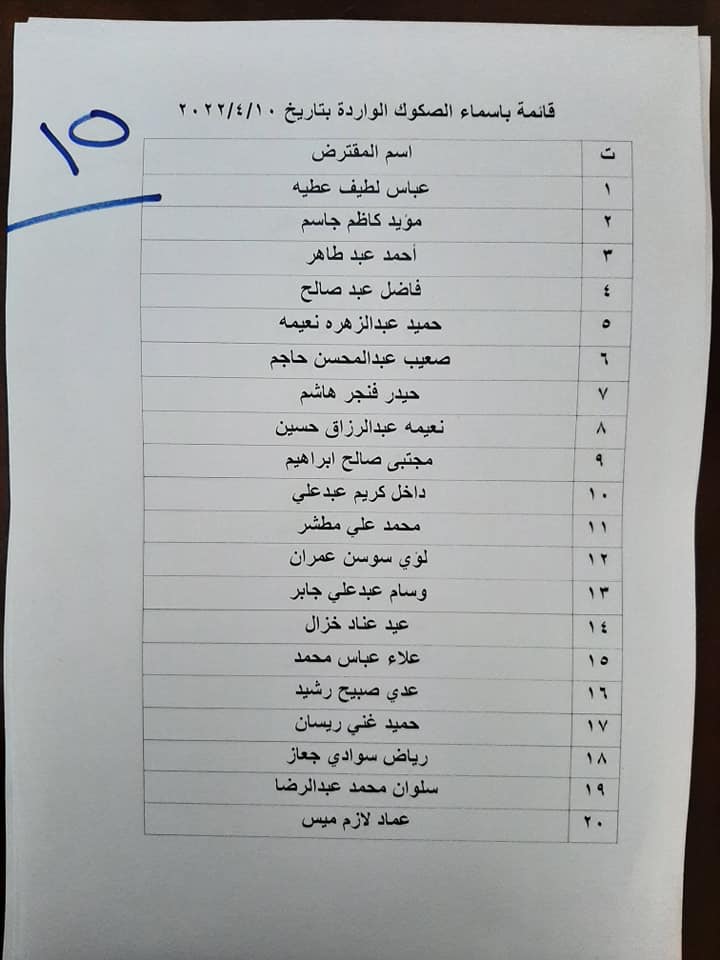 قائمة باسماء الصكوك الواردة بتاريخ ٢٠٢٢/٤/١٠
ت اسم المقترض
١ عباس لطيف عطيه
٢ مؤيد كاظم جاسم
٣ أحمد عبد طاهر
٤ فاضل عبد صالح
٥ حميد عبدالزهره نعيمه
٦ صعيب عبدالمحسن حاجم
٧ حيدر فنجر هاشم
٨ نعيمه عبدالرزاق حسين
٩ مجتبى صالح ابراهيم
١٠ داخل كريم عبدعلي
١١ محمد علي مطشر
١٢ لؤي سوسن عمران
١٣ وسام عبدعلي جابر
١٤ عيد عناد خزال
١٥ علاء عباس محمد
١٦ عدي صبيح رشيد
١٧ حميد غني ريسان
١٨ رياض سوادي جعاز
١٩ سلوان محمد عبدالرضا
٢٠ عماد لازم ميس